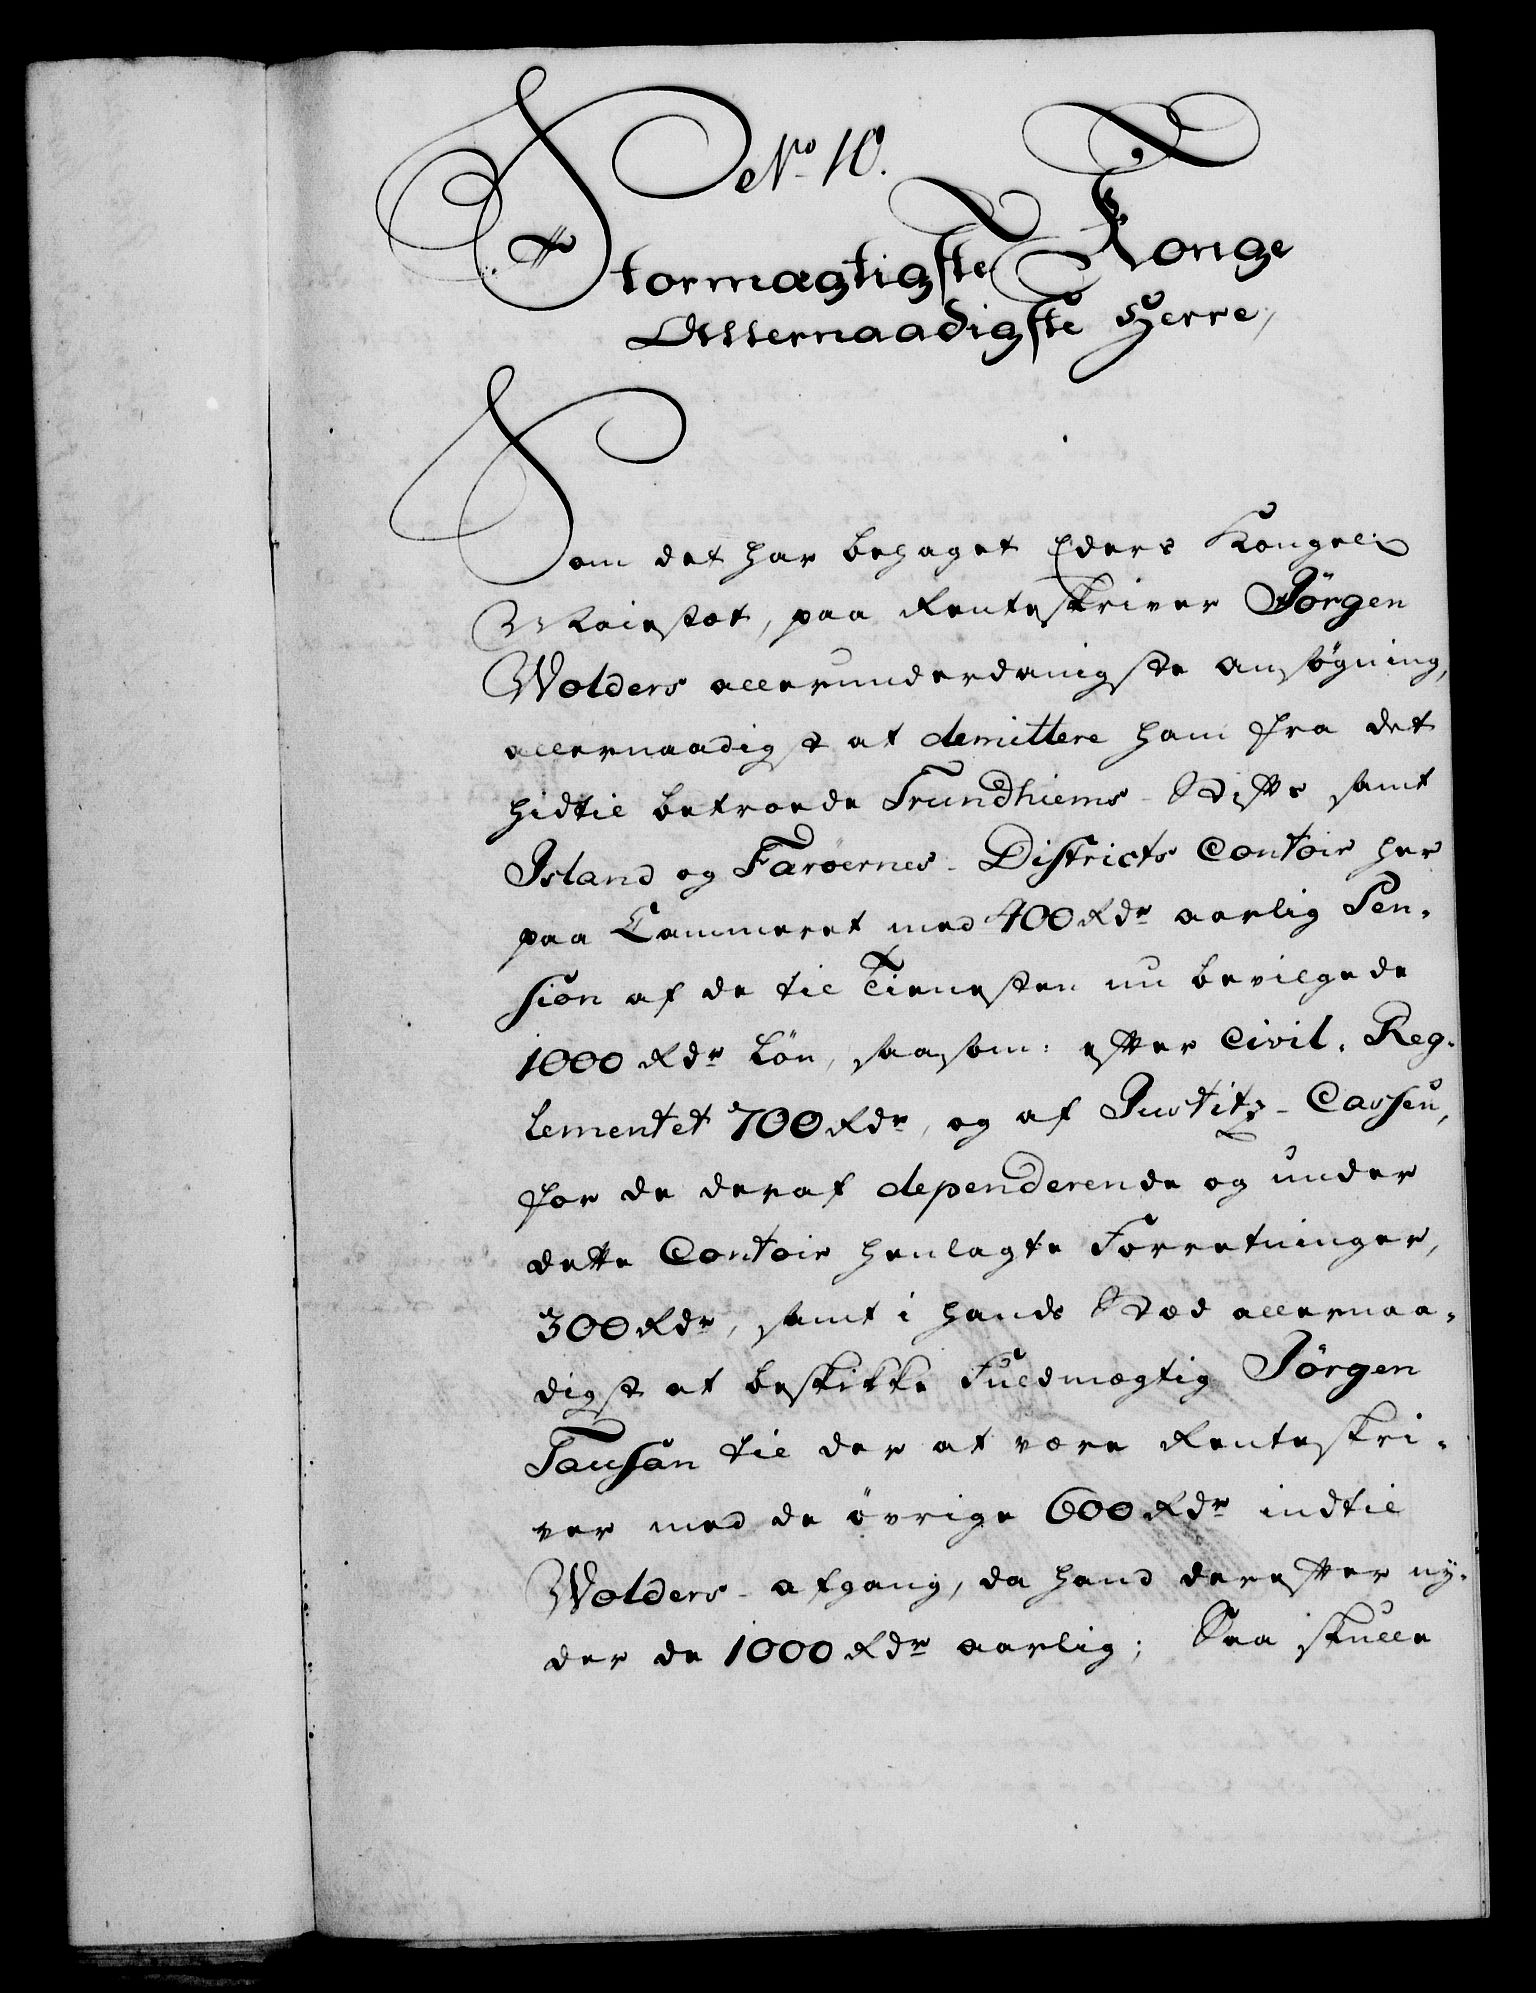 No 10.
Stormægtigste Konge
Allernaadigste Herre,
Som det har behaget Eders Kongel:
Maiestæt, paa Renteskriver Jörgen
Wolders allerunderdanigste ansögning,
allernaadigst at demittere ham fra det
hidtil betroede Trundhiems-Stifts samt
Island og Faröernes-Districts Contoir her
paa Cammeret med 400 Rdr aarlig Pen-
sion af de til Tienesten nu bevilgede
1000 Rdr Lön, saasom: efter Civil-Reg-
lementet 700 Rdr, og af Justitz-Cassen,
for de deraf dependerende og under
dette Contoir henlagte Forretninger,
300 Rdr, samt i hands Sted allernaa-
digst at beskikke Fuldmægtig Jörgen
Tausan til der at være Renteskri-
ver med de övrige 600 Rdr indtil
Wolders-afgang, da hand derefter ny-
der de 1000 Rdr aarlig; Saa skulle